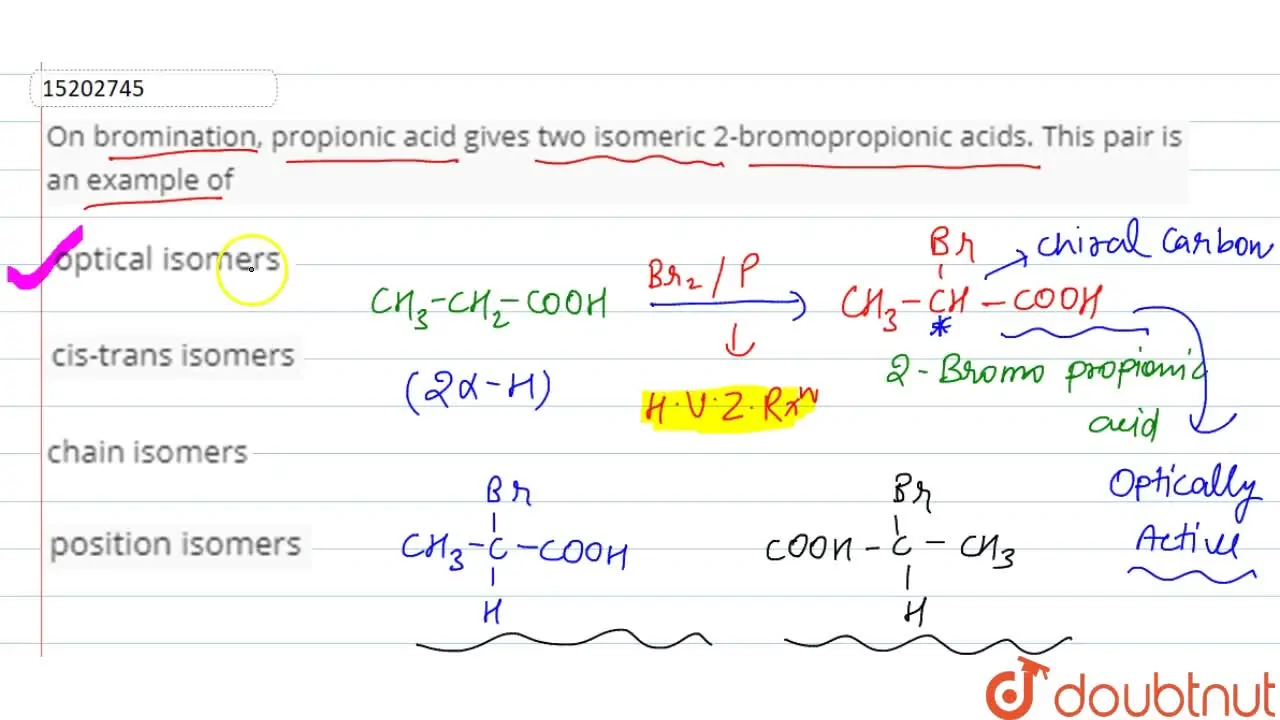 15202745
On bromination, propionic acid gives two isomeric 2-bromopropionic acids. This pair is
an example of
optical isomers
cis-trans isomers
chain isomers
position isomers
CH3-CH2-COOH
(2α-H)
Br2/P
H.V.Z.Rxn
Br
CH3-CH-COOH
*
chiral carbon
2-Bromo propionic
acid
Optically
Active
Br
CH3-C-COOH
H
Br
COOH-C-CH3
H
doubtnut